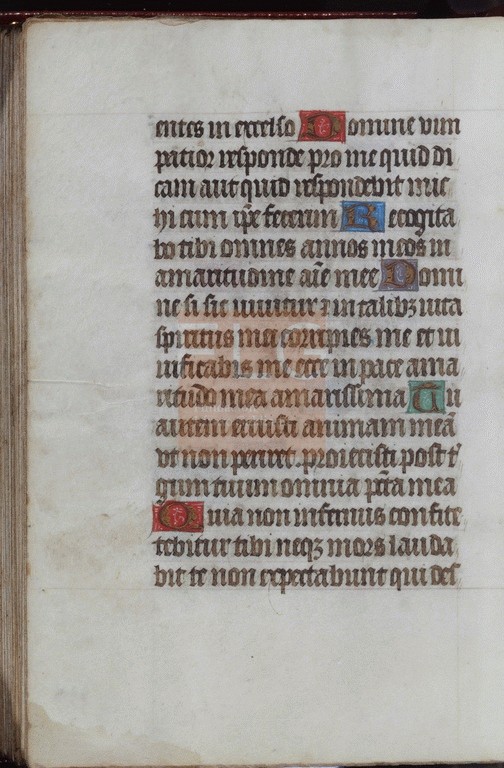 entes in excelso Domine vim
patior responde pro me quid di
cam aut quid respondebit mic
hi cum ip̄e fecerim Recogita
bo tibi omnes annos meos in
amaritudine aīe mee Domi
ne si sic uiuitur ⁊ in talibꝫ uita
spiritus mei corripies me et ui
uificabis me ecce in pace ama
ritudo mea amarissima Tu
autem eruisti animam meā
vt non periret proiecisti post t̄
gum tuum omnia pctā mea
Quia non infernus confite
tebitur tibi neqꝫ mors lauda
bit te non expectabunt qui des